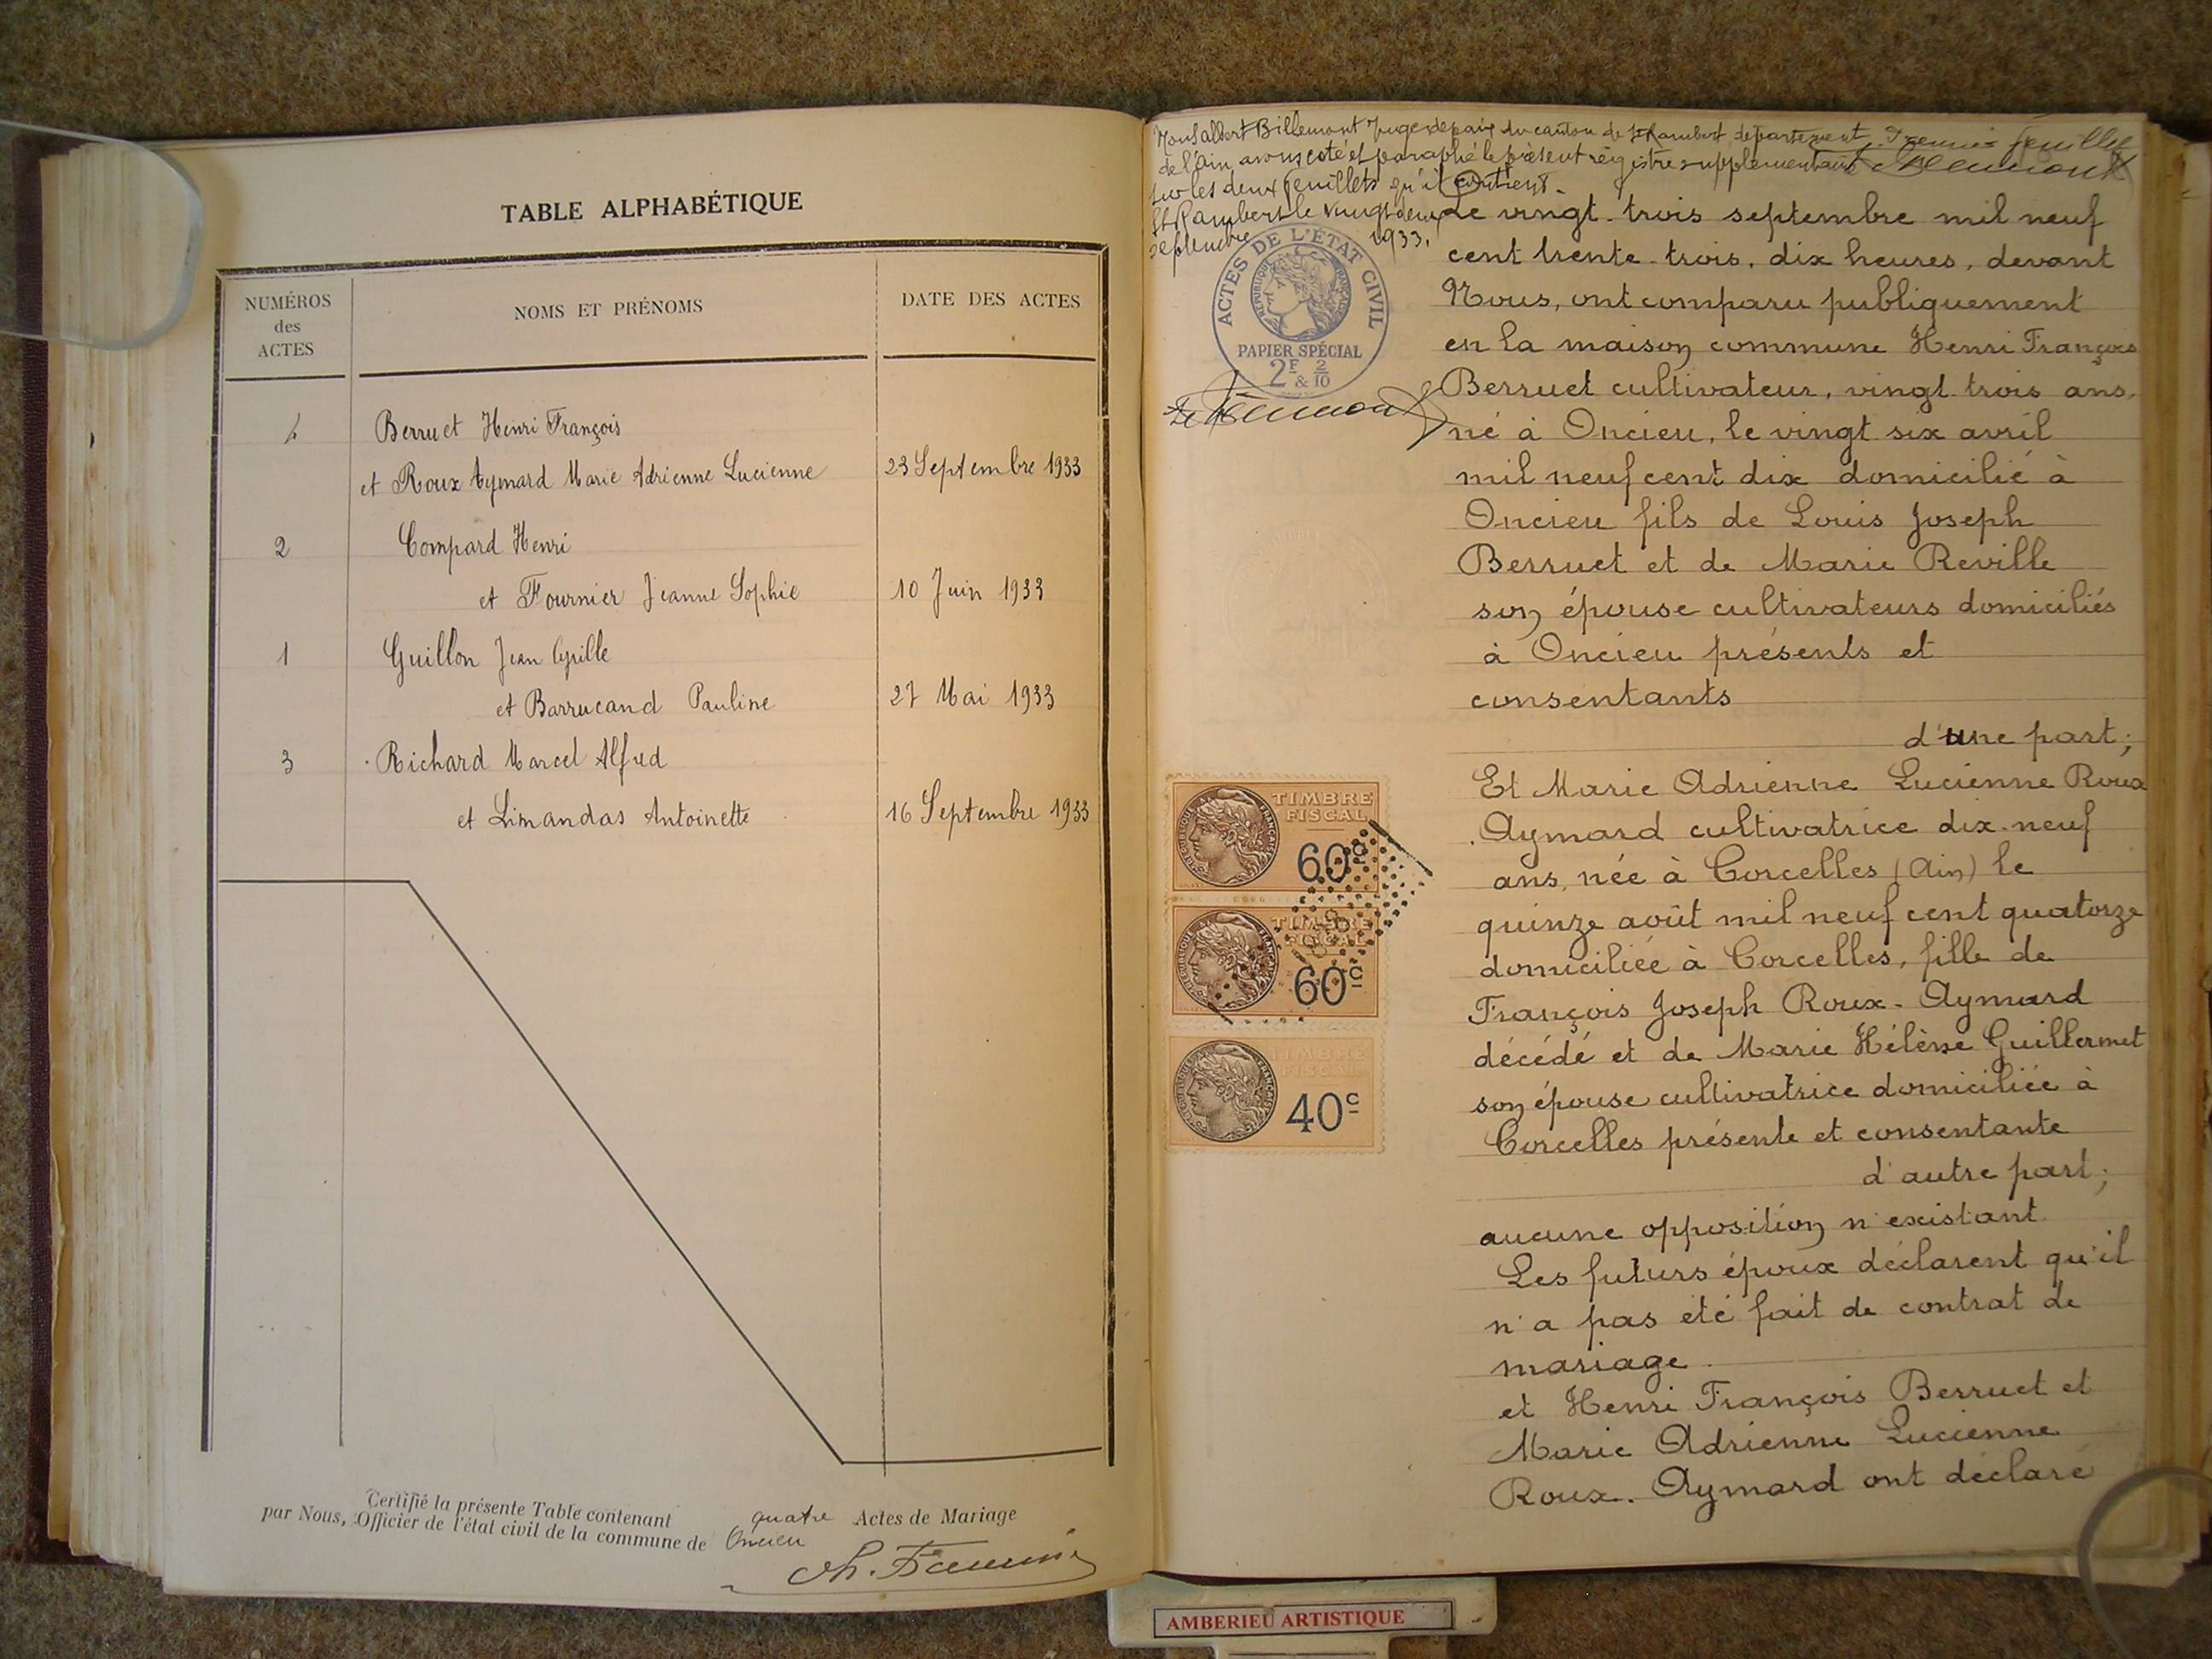 TABLE ALPHABÉTIQUE
NUMÉROS
des
ACTES
NOMS ET PRÉNOMS
DATE DES ACTES
4 Berruet Henri François
et Roux Aymard Marie Adrienne Lucienne 23 Septembre 1933
2 Compard Henri
et Fournier Jeanne Sophie 10 Juin 1933
1 Guillon Jean Cyrille
et Barrucand Pauline 27 Mai 1933
3 Richard Marcel Alfred
et Limandas Antoinette 16 Septembre 1933
Certifié la présente Table contenant quatre Actes de Mariage
par Nous, Officier de l'état civil de la commune de Oncieu
Nous albert Billemont Juge de paix du canton de St Rambert departement
de l'Ain avons coté et paraphé le présent régistre supplementaire
sur les deux feuillets qu'il contient.
St Rambert le vingt deux
septembre 1933.
ACTES DE L'ÉTAT CIVIL
RÉPUBLIQUE FRANÇAISE
PAPIER SPÉCIAL
2F & 2/10
Le vingt-trois septembre mil neuf
cent trente-trois, dix heures, devant
Nous, ont comparu publiquement
en la maison commune Henri François
Berruet cultivateur, vingt trois ans,
né à Oncieu, le vingt six avril
mil neuf cent dix domicilié à
Oncieu fils de Louis Joseph
Berruet et de Marie Reville
son épouse cultivateurs domiciliés
à Oncieu présents et
consentants
d'une part;
Et Marie Adrienne Lucienne Roux
Aymard cultivatrice dix-neuf
ans, née à Corcelles (Ain) le
quinze août mil neuf cent quatorze
domiciliée à Corcelles, fille de
François Joseph Roux-Aymard
décédé et de Marie Hélène Guillermet
son épouse cultivatrice domiciliée à
Corcelles présente et consentante
d'autre part;
aucune opposition n'existant.
Les futurs époux déclarent qu'il
n'a pas été fait de contrat de
mariage.
et Henri François Berruet et
Marie Adrienne Lucienne
Roux-Aymard ont déclaré
TIMBRE
FISCAL
60c
TIMBRE
FISCAL
60c
TIMBRE
FISCAL
40c
AMBERIEU ARTISTIQUE